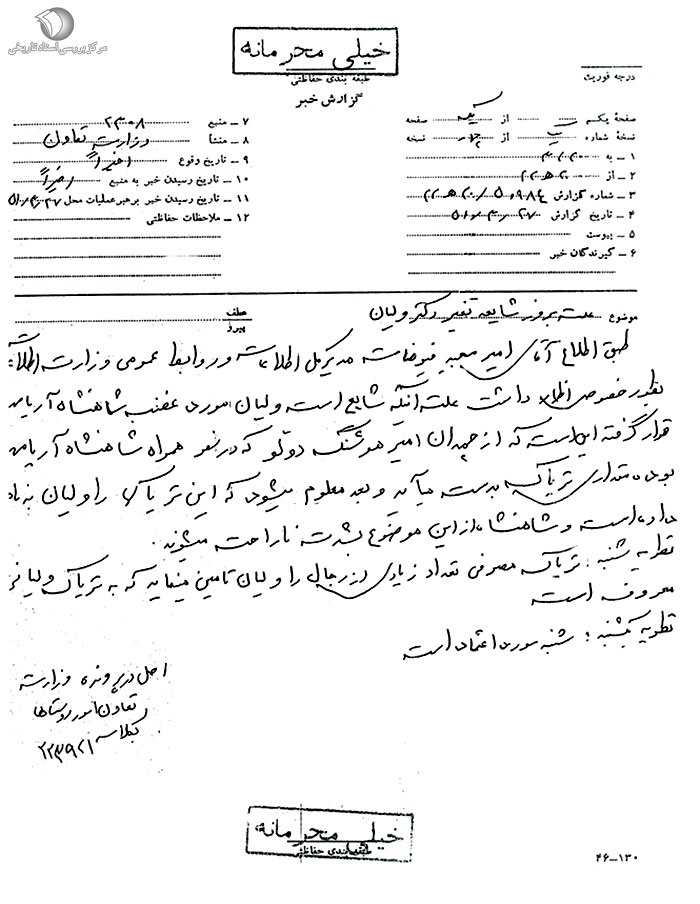 مرکز بررسی اسناد تاریخی
خیلی محرمانه
طبقه بندی حفاظتی
گزارش خبر
درجه فوریت
صفحهٔ یکم از یک صفحه
نسخهٔ شماره از نسخه
۱ ــ به
۲ ــ از ۲۰ هـ ۲۲
۳ ــ شماره گزارش ۵۰۹۸۴ / ۲۰ هـ ۲۲
۴ ــ تاریخ گزارش ۵۱/۴/۲۷
۵ ــ پیوست
۶ ــ گیرندگان خبر
۷ ــ منبع ۲۳۰۸
۸ ــ منشأ وزارت تعاون
۹ ــ تاریخ وقوع اخیراً
۱۰ ــ تاریخ رسیدن خبر به منبع اخیراً
۱۱ ــ تاریخ رسیدن خبر برهبر عملیات محل ۵۱/۴/۲۷
۱۲ ــ ملاحظات حفاظتی
موضوع علت بروز شایعه تغییر دکتر ولیان
عطف
پیرو
طبق اطلاع آقای امیر فیوضات مدیرکل اطلاعات و روابط عمومی وزارت اطلاعات
بطور خصوصی اظهار داشت علت آنکه شایع است ولیان مورد غضب شاهنشاه آریامهر
قرار گرفته این است که از چمدان امیر هوشنگ دولو که در سفر همراه شاهنشاه آریامهر
بوده مقداری تریاک بدست میآید و بعد معلوم میشود که این تریاک را ولیان به نامبرده
داده است و شاهنشاه از این موضوع بشدت ناراحت میشوند.
نظریه شنبه : تریاک مصرفی تعداد زیادی از رجال را ولیان تامین مینماید که به تریاک ولیانی
معروف است
نظریه یکشنبه : شنبه مورد اعتماد است
اصل در پرونده وزارت
تعاون امور روستاها
بکلاسه ۲۲۳۹۲۱
خیلی محرمانه
طبقه بندی حفاظتی
۴۶ــ۱۳۰